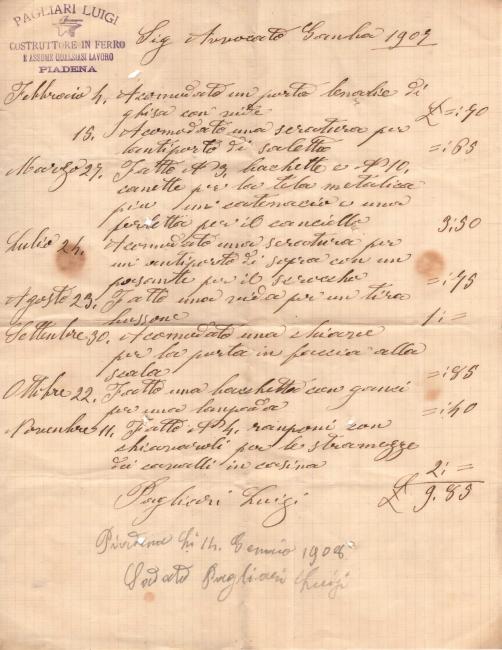 PAGLIARI LUIGI
COSTRUTTORE IN FERRO
E ASSUME QUALSIASI LAVORO
PIADENA
Sig Avvocato 1907
Febbraio 4. Acomodato un porta di
ghisa con vide £ =:70
15. Acomodato una seratura per
l'antiporto di saletta =:65
Marzo 27. Fatto N 3. bachette e N 10.
canette per la tela metalica
piu un catenaccio e una
per il cancello 3:50
Lulio 24. Acomodato una seratura per
un antiporto di sopra con un
pesante per il =:75
Agosto 23. Fatto una vida per un tira
bussone 1: =
Settembre 30. Acomodato una chiave
per la porta in faccia alla
scala =:85
Ottobre 22. Fatto una bacchetta con ganci
per una lampada =:40
Novembre 11. Fatto N 4. ramponi con
chiavaroli per le stramezze
dei cavalli in casina 2: =
Pagliari Luigi £ 9.85
Piadena li 14. Gennaio 1908
Saldato Pagliari Luigi